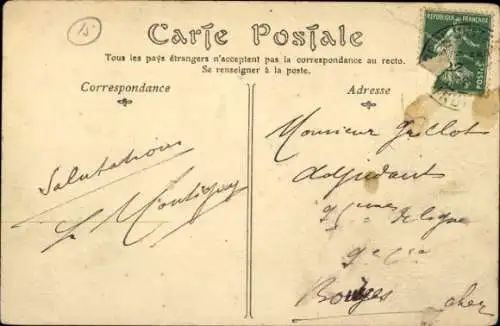 15
Carte Postale
RÉPUBLIQUE FRANÇAISE
Tous les pays étrangers n'acceptent pas la correspondance au recto.
Se renseigner à la poste.
POSTES
Correspondance
Adresse
Salutations
Montigny
Monsieur Grillot
Adjudant
de ligne
9e Cie
Bourges Cher